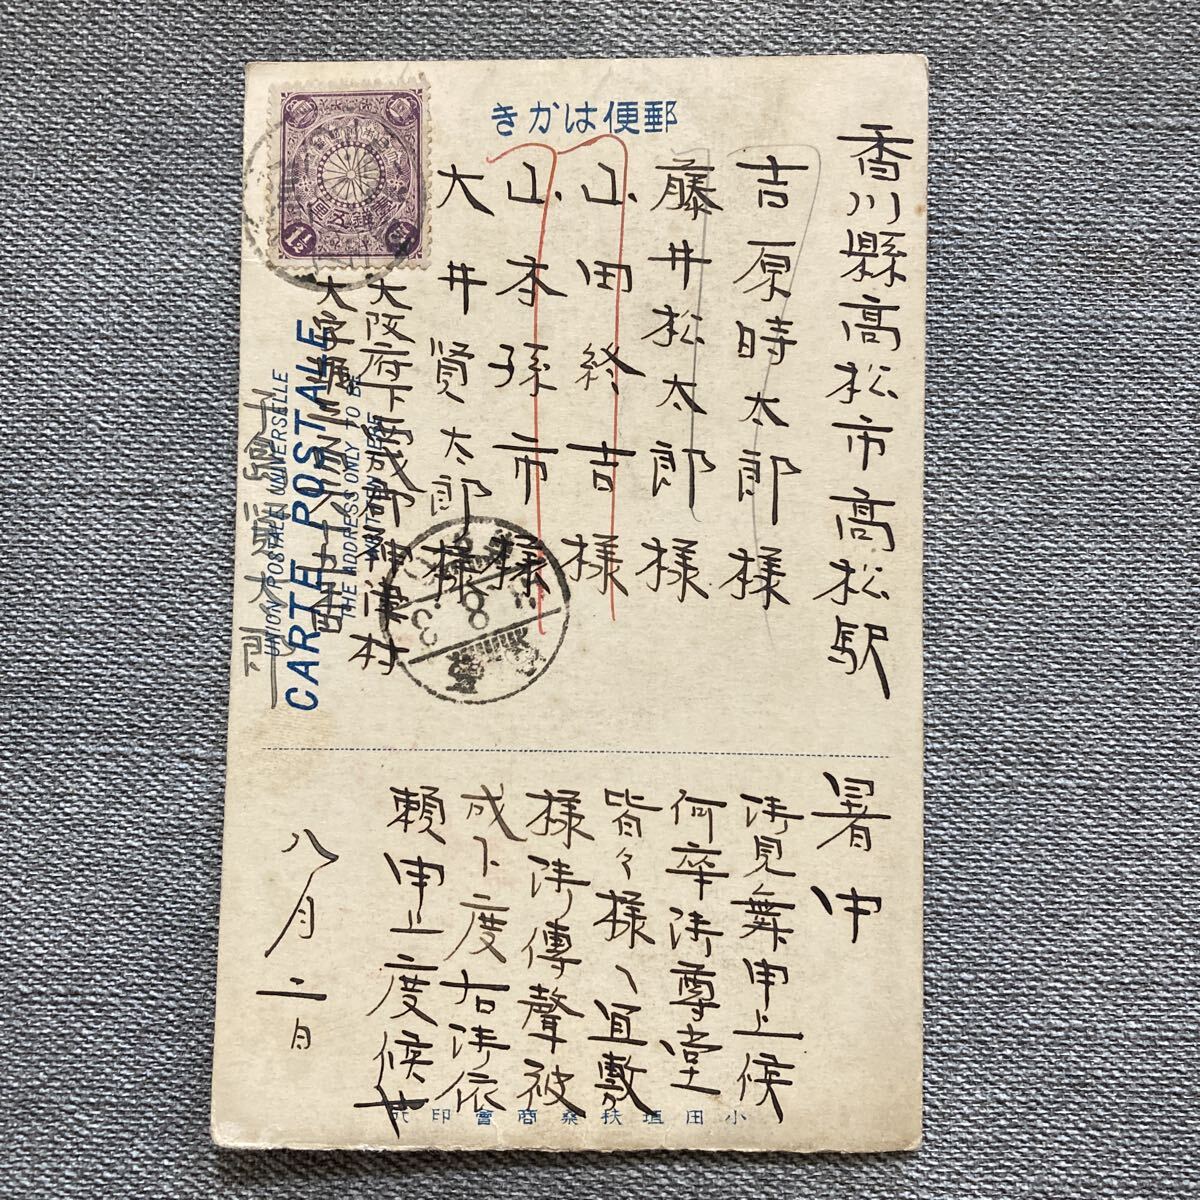 郵便はかき
香川縣高松市高松駅
吉原時太郎様
藤井松太郎様
山田終吉様
山本孫市様
大井賢太郎様
大阪府下西成郡神津村
大字堀
太郎
CARTE POSTALE
UNION POSTALE UNIVERSELLE
THE ADDRESS ONLY TO BE
WRITTEN HERE
1½
暑中
御見舞申上候
何卒御尊堂
皆々様へ宜敷
様御傳聲被
成下度右御依
頼申上度候也
八月二日
小田垣扶桑商會印